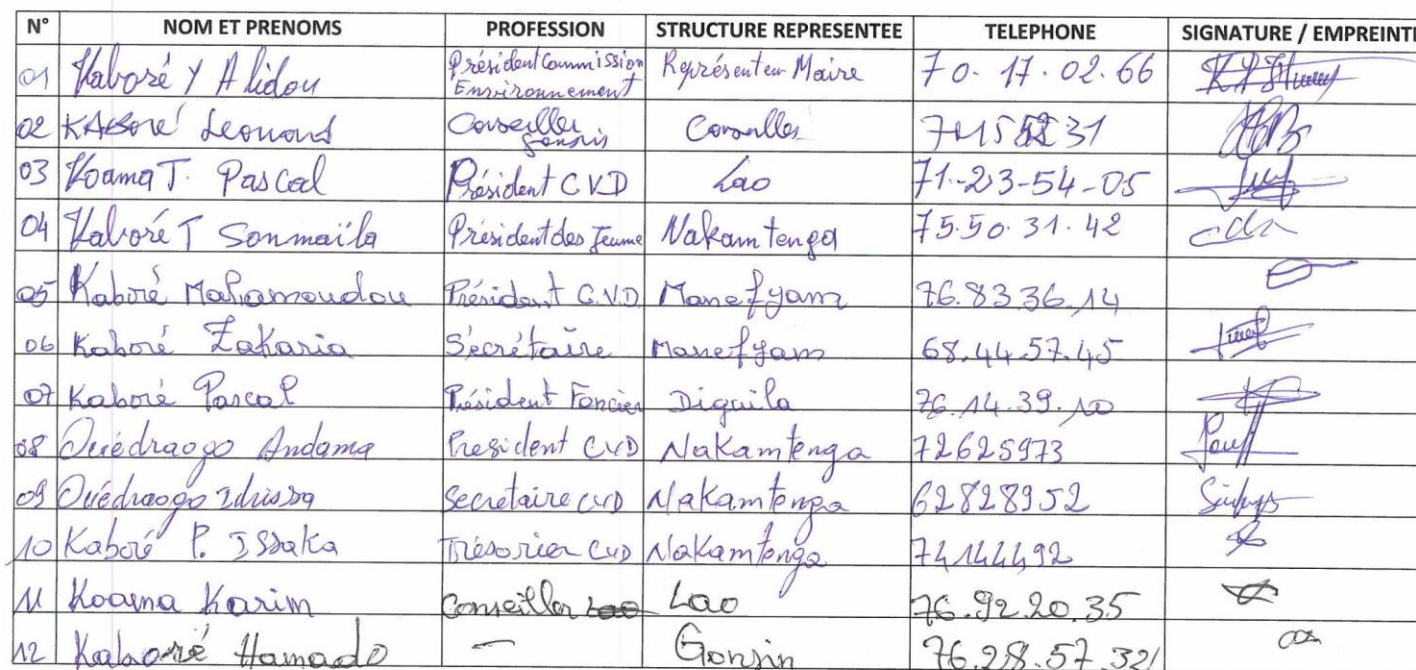 N° NOM ET PRENOMS PROFESSION STRUCTURE REPRESENTEE TELEPHONE SIGNATURE / EMPREINTE
01 Kaboré Y Alidou Président Commission Environnement Représentant Maire 70. 17. 02. 66
02 KABORE Leonard Conseiller Gonsin Conseiller
03 Koama T. Pascal Président CVD Lao 71-23-54-05
04 Kaboré T Soumaïla Président des Jeune Nakamtenga 75.50.31.42
05 Kaboré Mahamoudou Président C.V.D Manefyam 76.83.36.14
06 Kaboré Zakaria Sécrétaire Manefyam 68.44.57.45
07 Kaboré Pascal Président Foncier Diguila 76.14.39.10
08 Ouédraogo Andama President CVD Nakamtenga 72625973
09 Ouédraogo Idrissa Secretaire CVD Nakamtenga 62828952
10 Kaboré P. Issaka Trésorier CVD Nakamtenga 74144492
11 Koama Karim Conseiller Lao 76.92.20.35
12 Kaboré Hamado - Gonsin 76.28.57.32